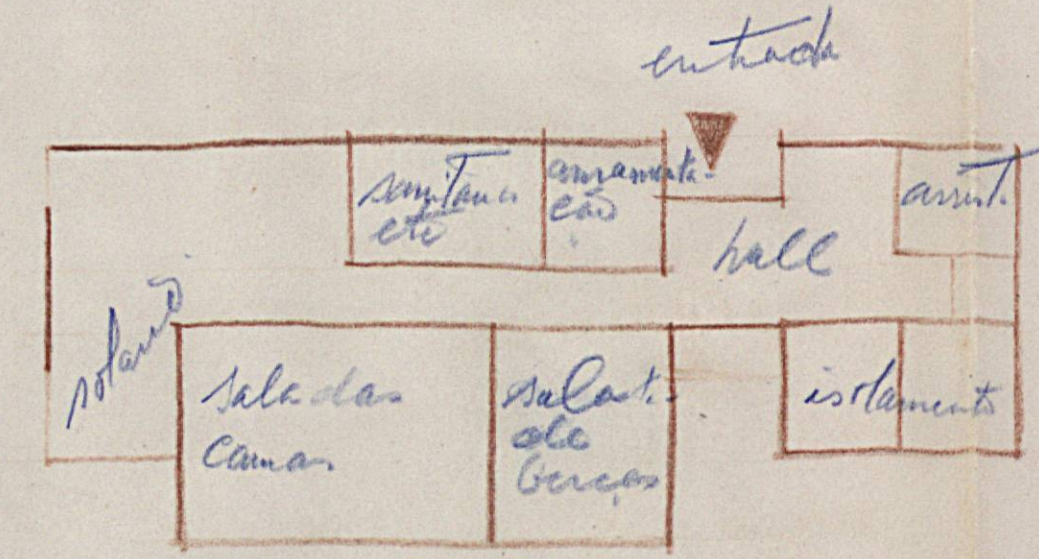 entrada
sanitários
etc
amamenta-
ção
hall
assist.
solário
sala das
camas
de
berços
isolamento